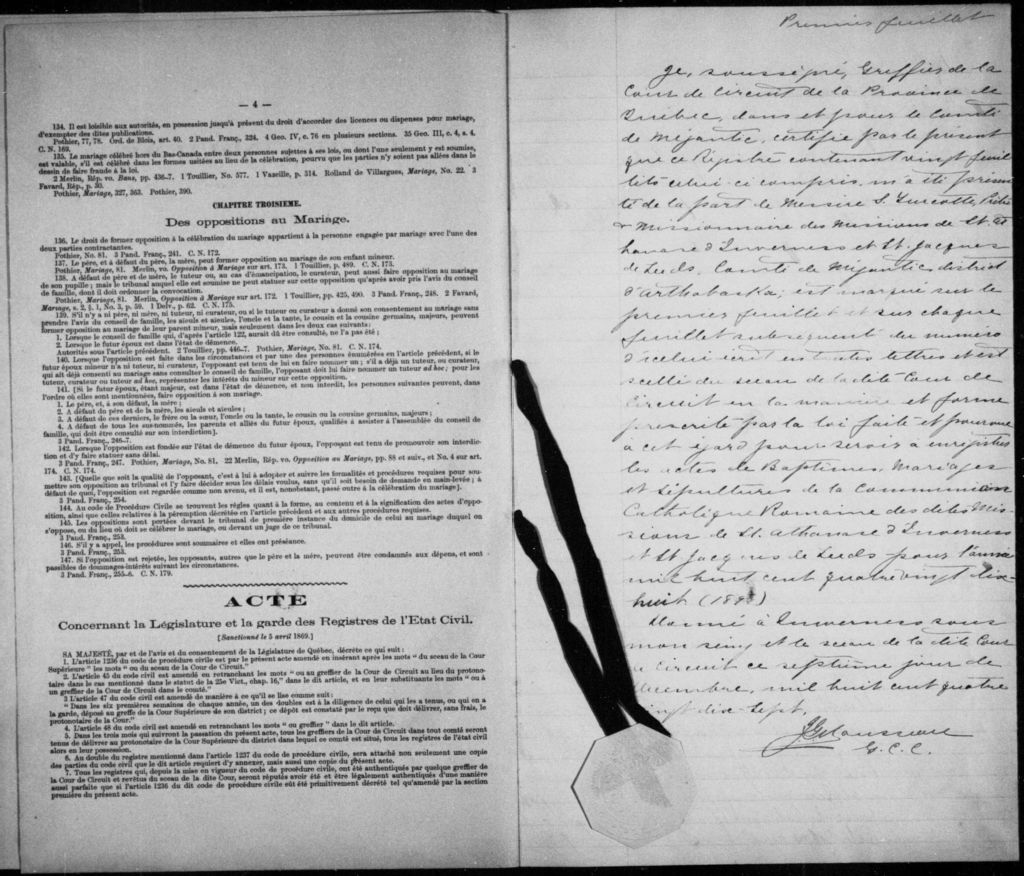 — 4 —
134. Il est loisible aux autorités, en possession jusqu'à présent du droit d'accorder des licences ou dispenses pour mariage,
d'exempter des dites publications.
Pothier, 77, 78. Ord. de Blois, art. 40. 2 Pand. Franç., 324. 4 Geo. IV, c. 76 en plusieurs sections. 35 Geo. III, c. 4, s. 4.
C. N. 169.
135. Le mariage célébré hors du Bas-Canada entre deux personnes sujettes à ses lois, ou dont l'une seulement y est soumise,
est valable, s'il est célébré dans les formes usitées au lieu de la célébration, pourvu que les parties n'y soient pas allées dans le
dessin de faire fraude à la loi.
2 Merlin, Rép. vo. Bans, pp. 436-7. 1 Touillier, No. 577. 1 Vazeille, p. 314. Rolland de Villargues, Mariage, No. 22. 3
Favard, Rép., p. 30.
Pothier, Mariage, 327, 363. Pothier, 390.
CHAPITRE TROISIEME.
Des oppositions au Mariage.
136. Le droit de former opposition à la célébration du mariage appartient à la personne engagée par mariage avec l'une des
deux parties contractantes.
Pothier, No. 81. 3 Pand. Franç., 241. C. N. 172.
137. Le père, et à défaut du père, la mère, peut former opposition au mariage de son enfant mineur.
Pothier, Mariage, 81. Merlin, vo. Opposition à Mariage sur art. 173. 1 Touillier, p. 489. C. N. 173.
138. A défaut de père et de mère, le tuteur, ou, au cas d'émancipation, le curateur, peut aussi faire opposition au mariage
de son pupille; mais le tribunal auquel elle est soumise ne peut statuer sur cette opposition qu'après avoir pris l'avis du conseil
de famille, dont il doit ordonner la convocation.
Pothier, Mariage, 81. Merlin, Opposition à Mariage sur art. 172. 1 Touillier, pp. 425, 490. 3 Pand. Franç., 248. 2 Favard,
Mariage, s. 2, § 1, No. 3, p. 59. 1 Delv., p. 62. C. N. 175.
139. S'il n'y a ni père, ni mère, ni tuteur, ni curateur, ou si le tuteur ou curateur a donné son consentement au mariage sans
prendre l'avis du conseil de famille, les aïeuls et aïeules, l'oncle et la tante, le cousin et la cousine germains, majeurs, peuvent
former opposition au mariage de leur parent mineur, mais seulement dans les deux cas suivants:
1. Lorsque le conseil de famille qui, d'après l'article 122, aurait dû être consulté, ne l'a pas été;
2. Lorsque le futur époux est dans l'état de démence.
Autorités sous l'article précédent. 2 Touillier, pp. 446-7. Pothier, Mariage, No. 81. C. N. 174.
140. Lorsque l'opposition est faite dans les circonstances et par une des personnes énumérées en l'article précédent, si le
futur époux mineur n'a ni tuteur, ni curateur, l'opposant est tenu de lui en faire nommer un; s'il a déjà un tuteur, ou curateur,
qui ait déjà consenti au mariage sans consulter le conseil de famille, l'opposant doit lui faire nommer un tuteur ad hoc; pour les
tuteur, curateur ou tuteur ad hoc, représenter les intérêts du mineur sur cette opposition.
141. [Si le futur époux, étant majeur, est dans l'état de démence, et non interdit, les personnes suivantes peuvent, dans
l'ordre où elles sont mentionnées, faire opposition à son mariage.
1. Le père, et, à son défaut, la mère;
2. A défaut du père et de la mère, les aïeuls et aïeules;
3. A défaut de ces derniers, le frère ou la sœur, l'oncle ou la tante, le cousin ou la cousine germains, majeurs;
4. A défaut de tous les susnommés, les parents et alliés du futur époux, qualifiés à assister à l'assemblée du conseil de
famille, qui doit être consulté sur son interdiction].
3 Pand. Franç., 246-7.
142. Lorsque l'opposition est fondée sur l'état de démence du futur époux, l'opposant est tenu de promouvoir son interdic-
tion et d'y faire statuer sans délai.
3 Pand. Franç., 247. Pothier, Mariage, No. 81. 22 Merlin, Rép. vo. Opposition au Mariage, pp. 88 et suiv., et No. 4 sur art.
174. C. N. 174.
143. [Quelle que soit la qualité de l'opposant, c'est à lui à adopter et suivre les formalités et procédures requises pour sou-
mettre son opposition au tribunal et l'y faire décider sous les délais voulus, sans qu'il soit besoin de demande en main-levée; à
défaut de quoi, l'opposition est regardée comme non avenu, et il est, nonobstant, passé outre à la célébration du mariage].
3 Pand. Franç., 254.
144. Au code de Procédure Civile se trouvent les règles quant à la forme, au contenu et à la signification des actes d'oppo-
sition, ainsi que celles relatives à la péremption décrétée en l'article précédent et aux autres procédures requises.
145. Les oppositions sont portées devant le tribunal de première instance du domicile de celui au mariage duquel on
s'oppose, ou du lieu où doit se célébrer le mariage, ou devant un juge de ce tribunal.
3 Pand. Franç., 253.
146. S'il y a appel, les procédures sont sommaires et elles ont préséance.
3 Pand. Franç., 253.
147. Si l'opposition est rejetée, les opposants, autres que le père et la mère, peuvent être condamnés aux dépens, et sont
passibles de dommages-intérêts suivant les circonstances.
3 Pand. Franç., 255-6. C. N. 179.
ACTE
Concernant la Législature et la garde des Registres de l'Etat Civil.
[Sanctionné le 5 avril 1869.]
SA MAJESTÉ, par et de l'avis et du consentement de la Législature de Québec, décrète ce qui suit:
1. L'article 1236 du code de procédure civile est par le présent acte amendé en insérant après les mots "du sceau de la Cour
Supérieure" les mots "ou du sceau de la Cour de Circuit."
2. L'article 45 du code civil est amendé en retranchant les mots "ou au greffier de la Cour de Circuit au lieu du protono-
taire dans le cas mentionné dans le statut de la 25e Vict., chap. 16," dans le dit article, et en leur substituants les mots "ou à
un greffier de la Cour de Circuit dans le comté."
3 L'article 47 du code civil est amendé de manière à ce qu'il se lise comme suit:
"Dans les six premières semaines de chaque année, un des doubles est à la diligence de celui qui les a tenus, ou qui en a
la garde, déposé au greffe de la Cour Supérieure de son district; ce dépôt est constaté par le reçu que doit délivrer, sans frais, le
protonotaire de la Cour."
4. L'article 48 du code civil est amendé en retranchant les mots "ou greffier" dans le dit article.
5. Dans les trois mois qui suivront la passation du présent acte, tous les greffiers de la Cour de Circuit dans tout comté seront
tenus de délivrer au protonotaire de la Cour Supérieure du district dans lequel ce comté est situé, tous les registres de l'état civil
alors en leur possession.
6. Au double du registre mentionné dans l'article 1237 du code de procédure civile, sera attaché non seulement une copie
des parties du code civil que le dit article requiert d'y annexer, mais aussi une copie du présent acte.
7. Tous les registres qui, depuis la mise en vigueur du code de procédure civile, ont été authentiqués par quelque greffier de
la Cour de Circuit et revêtus du sceau de la dite Cour, seront réputés avoir été et être légalement authentiqués d'une manière
aussi parfaite que si l'article 1236 du dit code de procédure civile eût été primitivement décrété tel qu'amendé par la section
première du présent acte.
Premier feuillet
Je, soussigné, Greffier de la
Cour de Circuit de la Province de
Québec, dans et pour le Comté
de Mégantic, certifie par le présent
que ce Régistre contenant vingt feuil
lets celui-ci compris, m'a été présen
té de la part de Messire S. Turcotte, Prêtre
& Missionnaire des Missions de St. At
hanase d'Inverness et St. Jacques
de Leeds, Comté de Mégantic, district
d'Arthabaska; est marqué sur le
premier feuillet et sur chaque
feuillet subsequent du numéro
d'icelui écrit en toutes lettres et est
scellé du sceau de la dite Cour de
Circuit en la manière et forme
prescrite par la loi faite et pourvue
à cet égard pour servir à enregistrer
les actes de Baptêmes, Mariages
et Sépultures de la Communion
Catholique Romaine des dites Mis-
sions de St. Athanase d'Inverness
et St. Jacques de Leeds pour l'année
mil huit cent quatre vingt dix
huit (1898)
Donné à Inverness sous
mon seing et le sceau de la dite Cour
de Circuit ce septième jour de
Décembre, mil huit cent quatre
vingt dix-sept.
G. C. C.